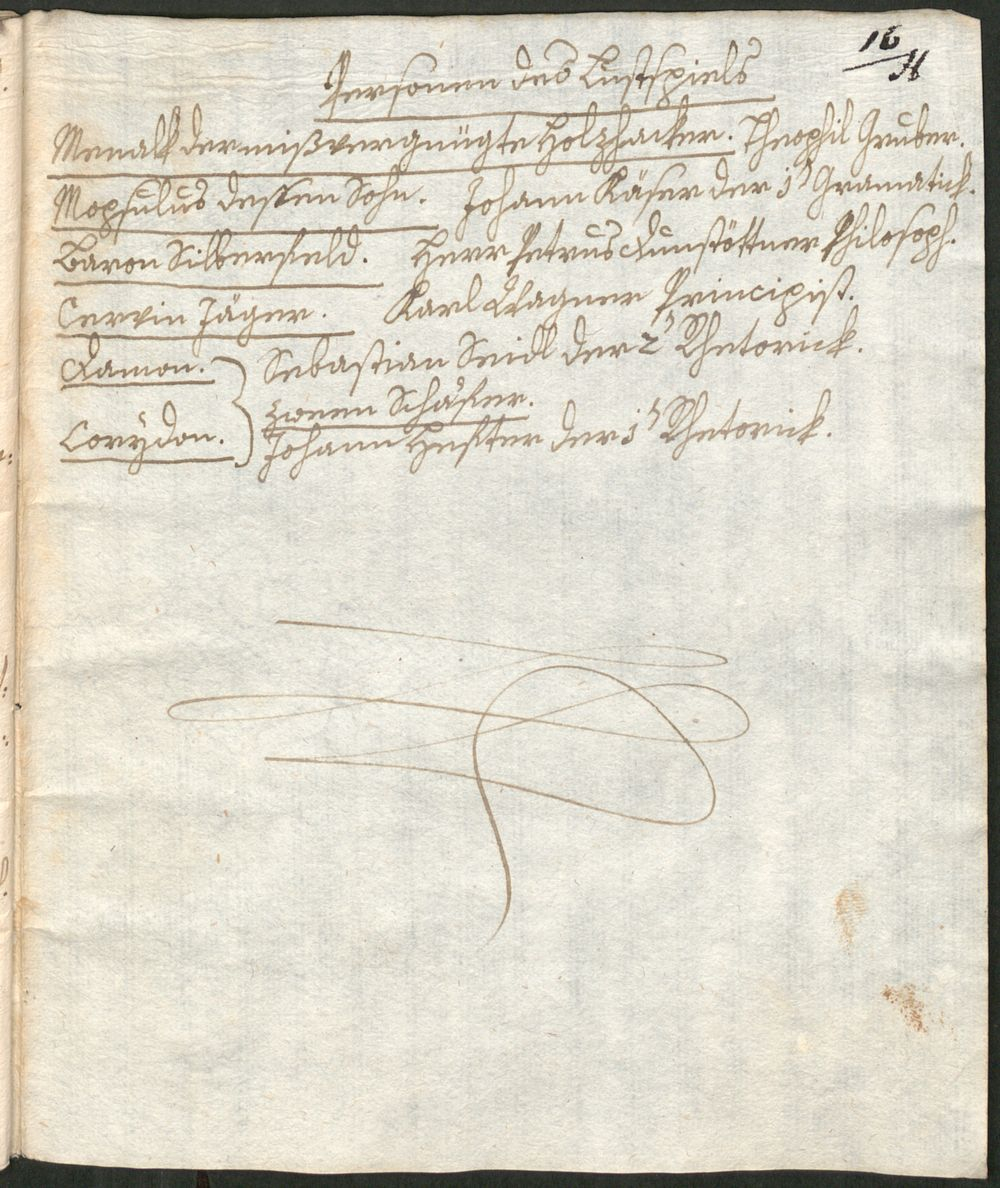 16
Personen des Lustspiels
Menalk der mißvergnügte Holzhacker. Theophil Gruber.
Mopsulus dessen Sohn. Johann Käser der 1ͭ Gramatick.
Baron Silberfeld. Herr Petrus Kunstöttner Philosoph.
Cervin Jäger. Karl Wagner Principist.
Damon. Sebastian Seidl der 2ͭ Rhetorick.
Zween Schäfer.
Corydon. Johann Hester der 1ͭ Rhetorick.